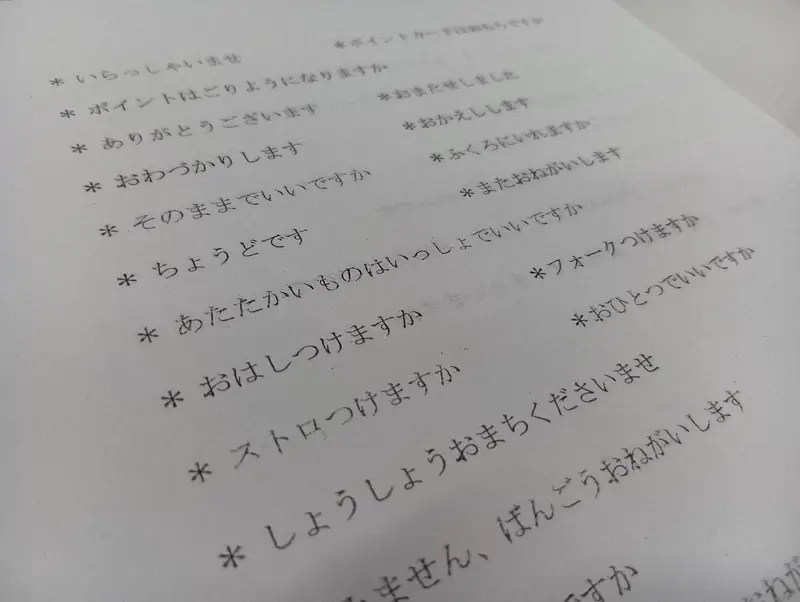 * いらっしゃいませ *ポイントカードはおもちですか
* ポイントはごりようになりますか
* ありがとうございます *おまたせしました
* おわづかりします *おかえしします
* そのままでいいですか *ふくろにいれますか
* ちょうどです *またおねがいします
* あたたかいものはいっしょでいいですか
* おはしつけますか *フォークつけますか
* ストロつけますか *おひとつでいいですか
* しょうしょうおまちくださいませ
ません、ばんごうおねがいします
ですか おねが